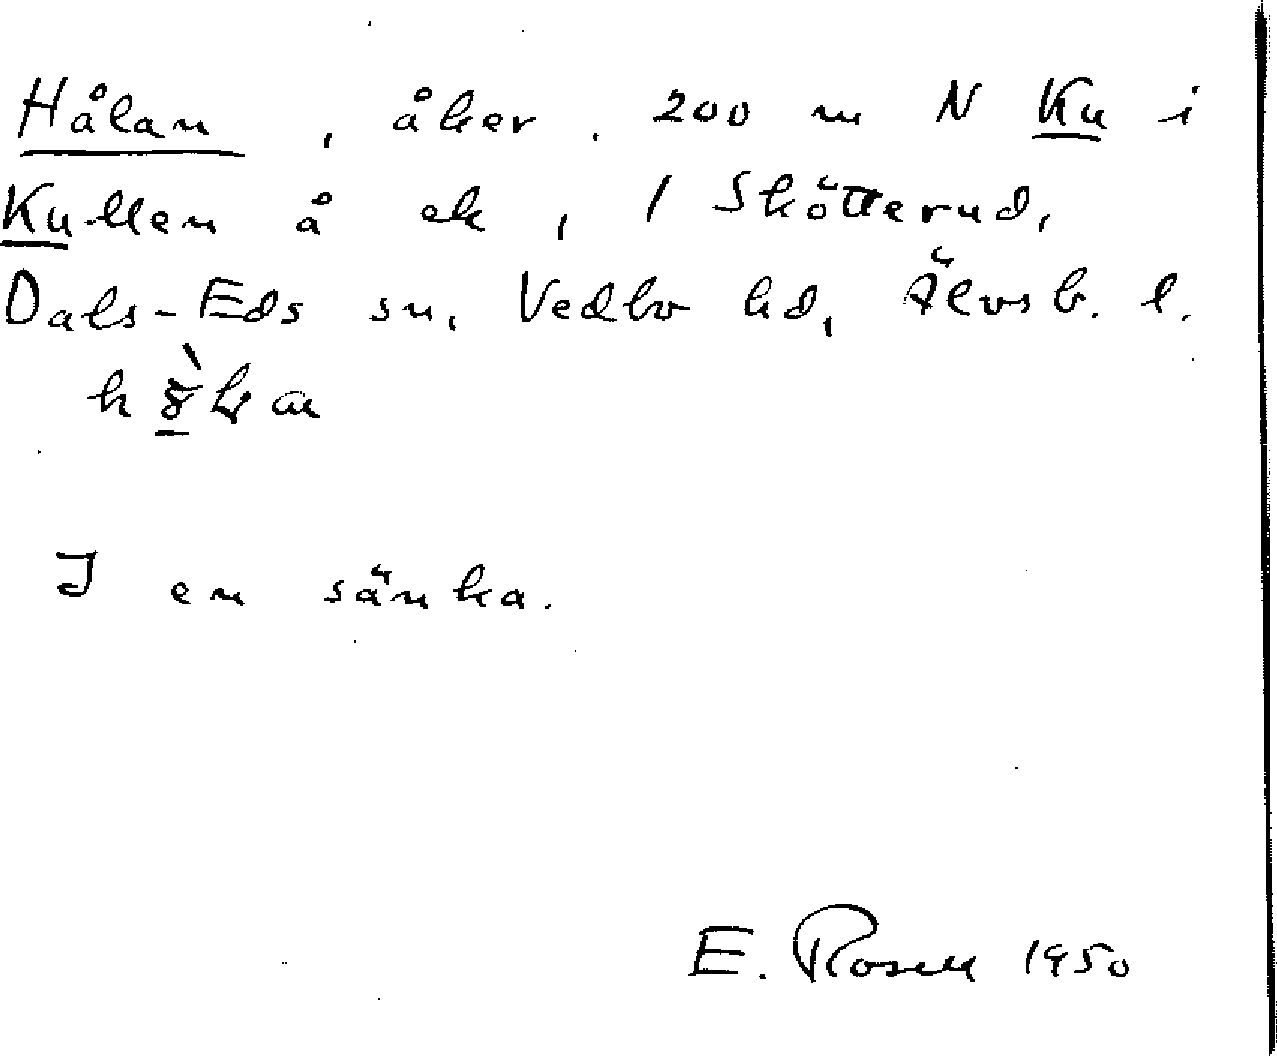 Hålan, åker. 200 m N Ku i
Kullen å ek, 1 Skötterud,
Dals-Eds sn, Vedbo hd, Älvsb. l.
I en sänka.
E. Rosell 1950